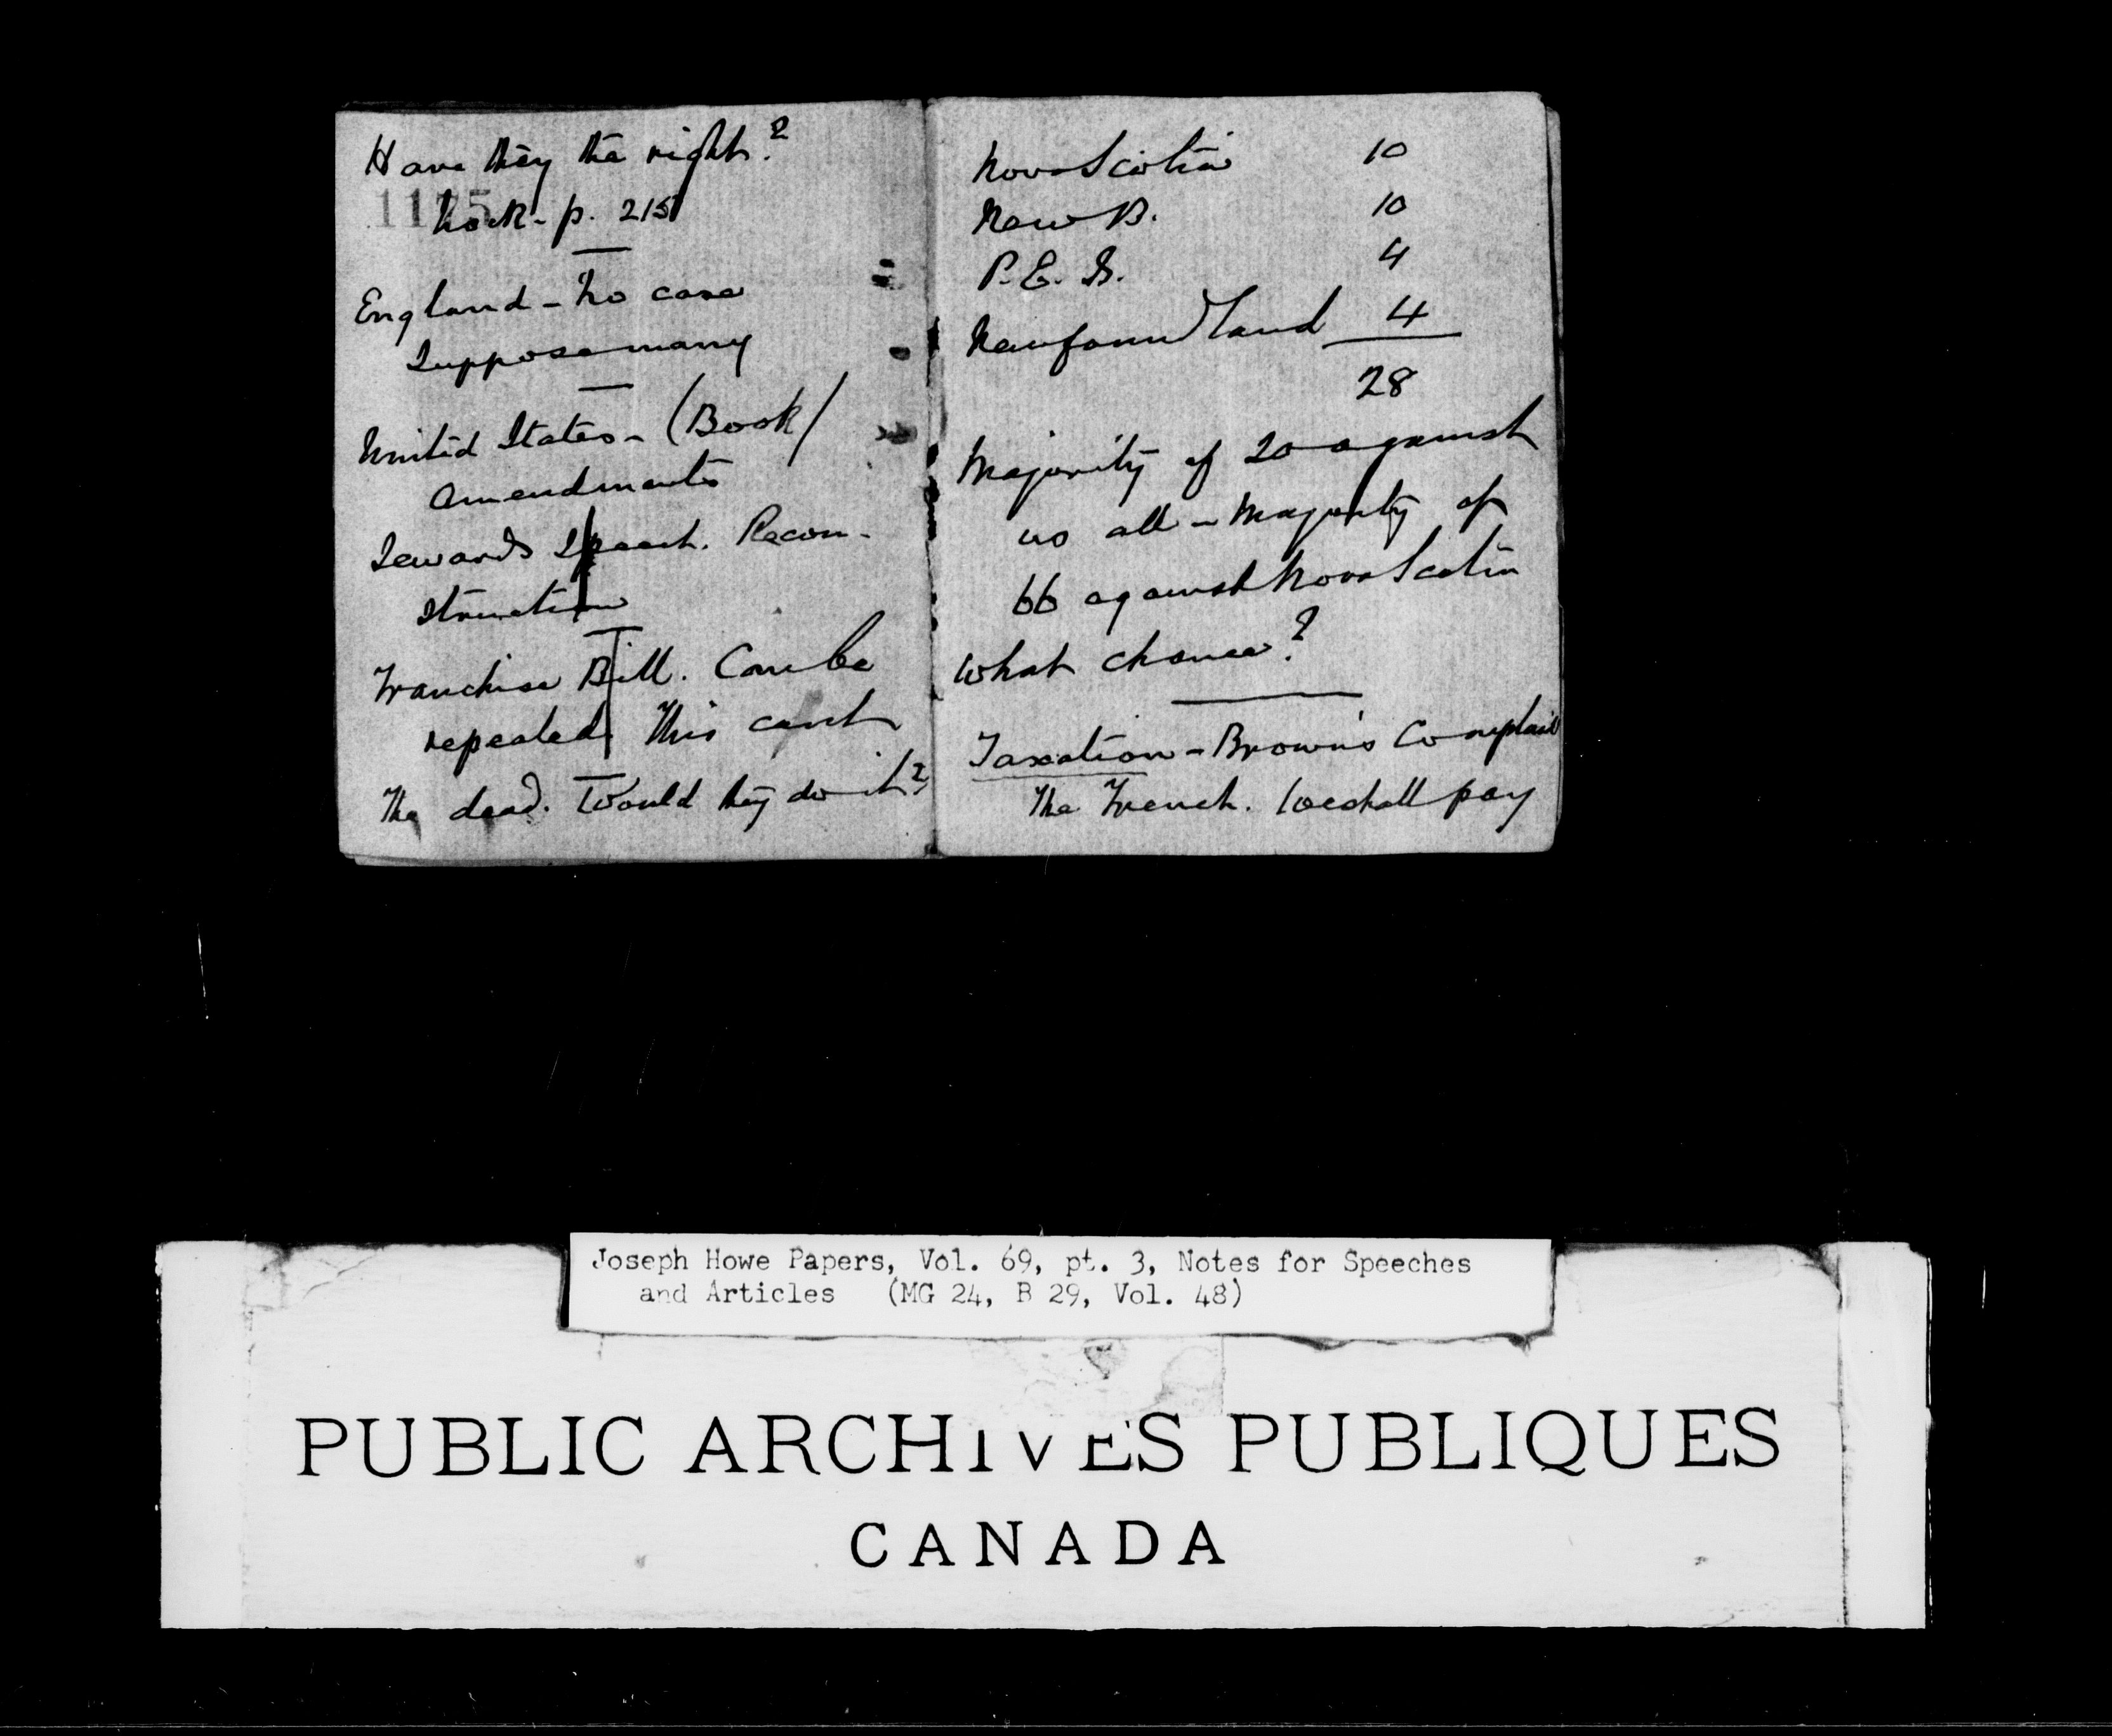 Have they the right?
1175
Lock - p. 215
England - No case
Suppose many
United States - (Book)
Amendments
Sewards Speech. Recon-
struction
Franchise Bill. Can be
repealed. This cant
The dead. Would they do it?
Nova Scotia 10
New B. 10
P. E. I. 4
Newfoundland 4
28
Majority of 20 against
us all - Majority of
66 against Nova Scotia
What chance?
Taxation - Brown's Complain
The French. We shall pay
Joseph Howe Papers, Vol. 69, pt. 3, Notes for Speeches
and Articles (MG 24, B 29, Vol. 48)
PUBLIC ARCHIVES PUBLIQUES
CANADA